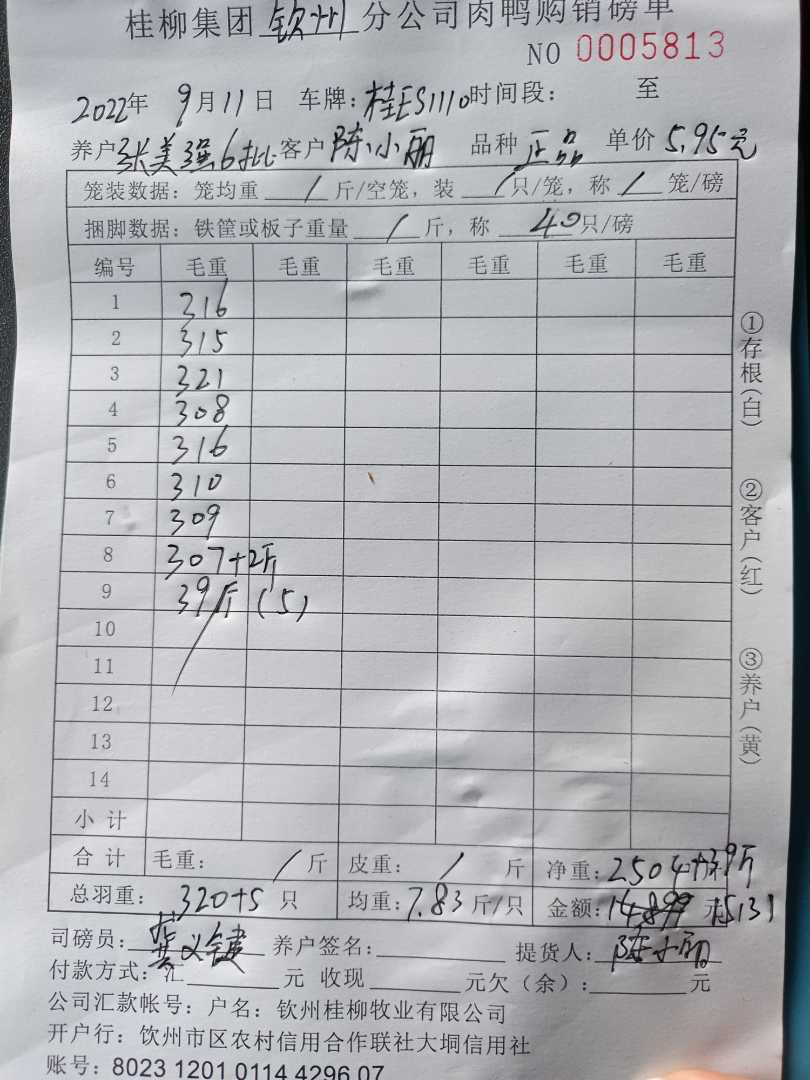 桂柳集团 钦州 分公司肉鸭购销磅单
NO 0005813
2022年 9月11日 车牌:桂ES1110 时间段: 至
养户 张美强6批 客户 陈小丽 品种 正品 单价 5.95元
笼装数据:笼均重 / 斤/空笼,装 / 只/笼,称 / 笼/磅
捆脚数据:铁筐或板子重量 / 斤,称 40 只/磅
编号 毛重 毛重 毛重 毛重 毛重 毛重
1 316
2 315
3 321
4 308
5 316
6 310
7 309
8 307+2斤
9 39斤(5)
10
11
12
13
14
小计
合计 毛重: / 斤 皮重: / 斤 净重:2504+39斤
总羽重: 320+5 只 均重:7.83 斤/只 金额:14899 元 15131
司磅员: 义键 养户签名: 提货人:陈小丽
付款方式:汇 元 收现 元欠(余): 元
公司汇款帐号:户名:钦州桂柳牧业有限公司
开户行:钦州市区农村信用合作联社大垌信用社
账号:8023 1201 0114 4296 07
①存根(白)
②客户(红)
③养户(黄)